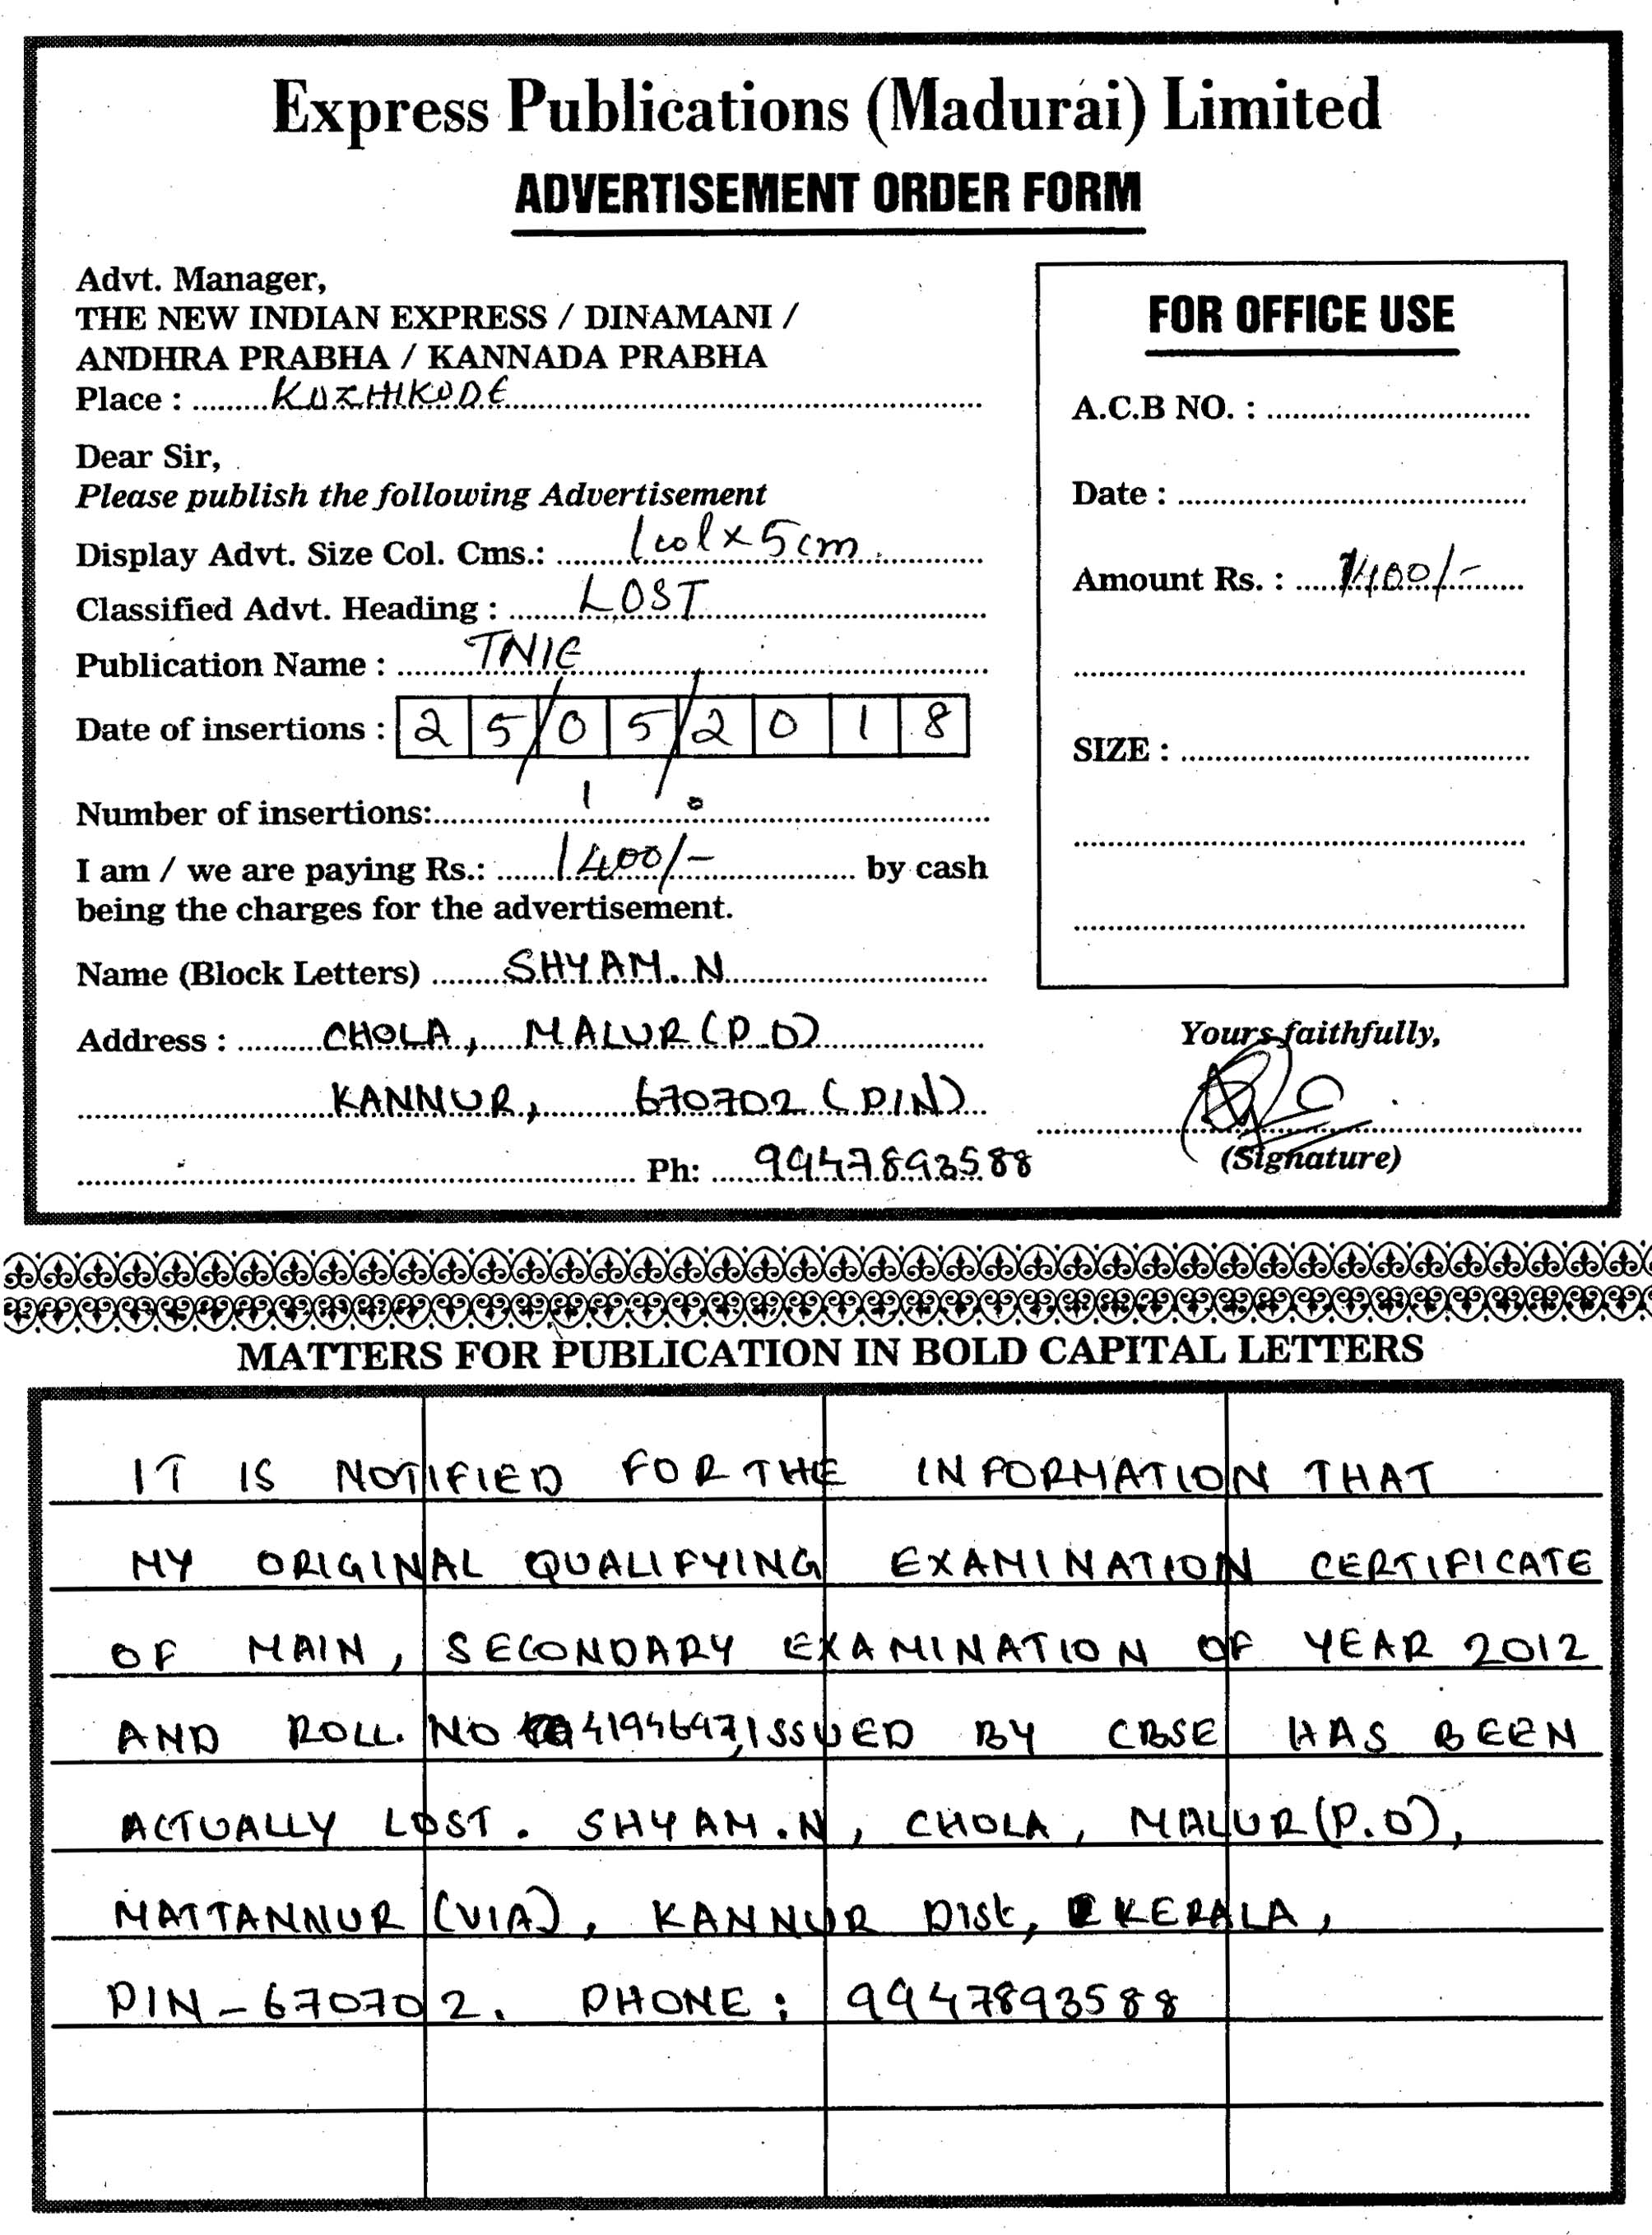 Express Publications (Madurai) Limited
ADVERTISEMENT ORDER FORM
Advt. Manager,
THE NEW INDIAN EXPRESS / DINAMANI /
ANDHRA PRABHA / KANNADA PRABHA
Place : KOZHIKODE
Dear Sir,
Please publish the following Advertisement
Display Advt. Size Col. Cms.: 1col x 5cm
Classified Advt. Heading : LOST
Publication Name : TNIE
Date of insertions : 25/05/2018
Number of insertions: 1
I am / we are paying Rs.: 1400/- by cash
being the charges for the advertisement.
Name (Block Letters) SHYAM.N
Address : CHOLA, MALUR (P.O)
KANNUR, 670702 (PIN)
Ph: 9947893588
FOR OFFICE USE
A.C.B NO. :
Date :
Amount Rs. : 1400/-
SIZE :
Yours faithfully,
(Signature)
MATTERS FOR PUBLICATION IN BOLD CAPITAL LETTERS
IT IS NOTIFIED FOR THE INFORMATION THAT
MY ORIGINAL QUALIFYING EXAMINATION CERTIFICATE
OF MAIN, SECONDARY EXAMINATION OF YEAR 2012
AND ROLL. NO 4194697, ISSUED BY CBSE HAS BEEN
ACTUALLY LOST. SHYAM.N, CHOLA, MALUR (P.O),
MATTANNUR (VIA), KANNUR Dist, KERALA,
PIN - 670702. PHONE: 9947893588